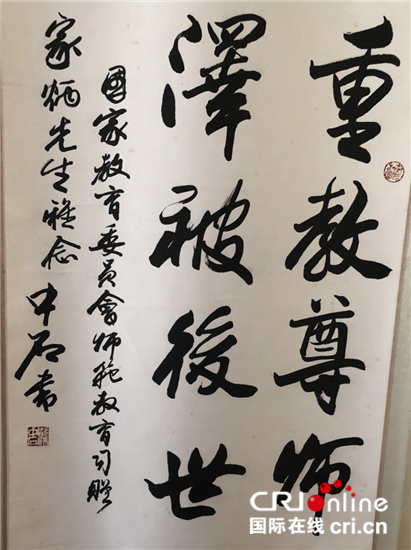 重教尊师
澤被後世
國家教育委員會师范教育司赠
家炳先生雅念
中石书
CRIonline
国际在线 cri.cn